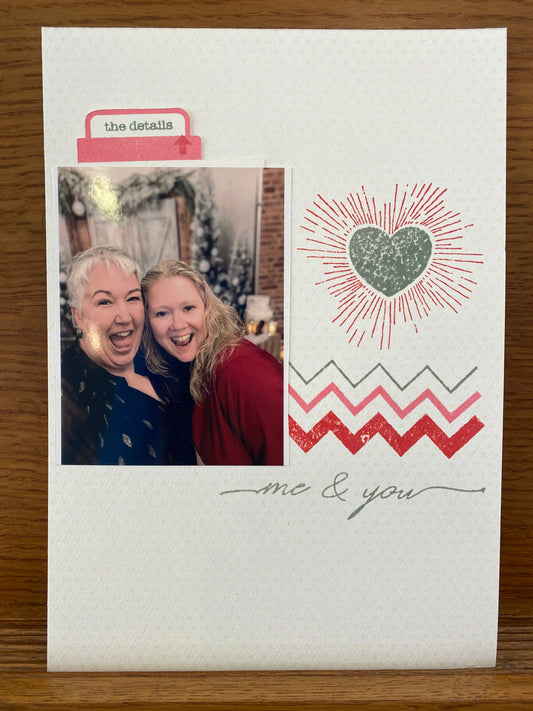 the details
me & you